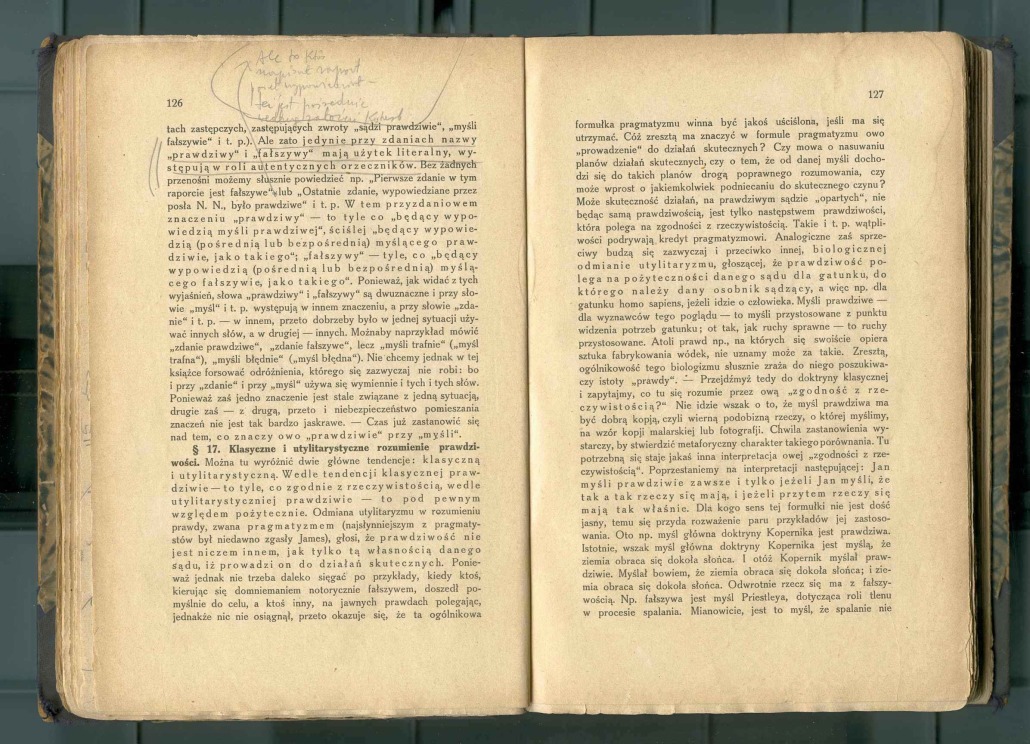 Ale to Kto
napisał raport
126
tach zastępczych, zastępujących zwroty „sądzi prawdziwie“, „myśli
fałszywie“ i t. p.). Ale zato jedynie przy zdaniach nazwy
„prawdziwy“ i „fałszywy“ mają użytek literalny, wy-
stępują w roli autentycznych orzeczników. Bez żadnych
przenośni możemy słusznie powiedzieć np. „Pierwsze zdanie w tym
raporcie jest fałszywe“ lub „Ostatnie zdanie, wypowiedziane przez
posła N. N., było prawdziwe“ i t. p. W tem przyzdaniowem
znaczeniu „prawdziwy“ — to tyle co „będący wypo-
wiedzią myśli prawdziwej“, ściślej „będący wypowie-
dzią (pośrednią lub bezpośrednią) myślącego praw-
dziwie, jako takiego“; „fałszywy“ — tyle, co „będący
wypowiedzią (pośrednią lub bezpośrednią) myślą-
cego fałszywie, jako takiego“. Ponieważ, jak widać z tych
wyjaśnień, słowa „prawdziwy“ i „fałszywy“ są dwuznaczne i przy sło-
wie „myśl“ i t. p. występują w innem znaczeniu, a przy słowie „zda-
nie“ i t. p. — w innem, przeto dobrzeby było w jednej sytuacji uży-
wać innych słów, a w drugiej — innych. Możnaby naprzykład mówić
„zdanie prawdziwe“, „zdanie fałszywe“, lecz „myśli trafnie“ („myśl
trafna“), „myśli błędnie“ („myśl błędna“). Nie chcemy jednak w tej
książce forsować odróżnienia, którego się zazwyczaj nie robi: bo
i przy „zdanie“ i przy „myśl“ używa się wymiennie i tych i tych słów.
Ponieważ zaś jedno znaczenie jest stale związane z jedną sytuacją,
drugie zaś — z drugą, przeto i niebezpieczeństwo pomieszania
znaczeń nie jest tak bardzo jaskrawe. — Czas już zastanowić się
nad tem, co znaczy owo „prawdziwie“ przy „myśli“.
§ 17. Klasyczne i utylitarystyczne rozumienie prawdzi-
wości. Można tu wyróżnić dwie główne tendencje: klasyczną
i utylitarystyczną. Wedle tendencji klasycznej praw-
dziwie — to tyle, co zgodnie z rzeczywistością, wedle
utylitarystyczniej prawdziwie — to pod pewnym
względem pożytecznie. Odmiana utylitaryzmu w rozumieniu
prawdy, zwana pragmatyzmem (najsłynniejszym z pragmaty-
stów był niedawno zgasły James), głosi, że prawdziwość nie
jest niczem innem, jak tylko tą własnością danego
sądu, iż prowadzi on do działań skutecznych. Ponie-
waż jednak nie trzeba daleko sięgać po przykłady, kiedy ktoś,
kierując się domniemaniem notorycznie fałszywem, doszedł po-
myślnie do celu, a ktoś inny, na jawnych prawdach polegając,
jednakże nic nie osiągnął, przeto okazuje się, że ta ogólnikowa
127
formułka pragmatyzmu winna być jakoś uściślona, jeśli ma się
utrzymać. Cóż zresztą ma znaczyć w formule pragmatyzmu owo
„prowadzenie“ do działań skutecznych? Czy mowa o nasuwaniu
planów działań skutecznych, czy o tem, że od danej myśli docho-
dzi się do takich planów drogą poprawnego rozumowania, czy
może wprost o jakiemkolwiek podniecaniu do skutecznego czynu?
Może skuteczność działań, na prawdziwym sądzie „opartych“, nie
będąc samą prawdziwością, jest tylko następstwem prawdziwości,
która polega na zgodności z rzeczywistością. Takie i t. p. wątpli-
wości podrywają kredyt pragmatyzmowi. Analogiczne zaś sprze-
ciwy budzą się zazwyczaj i przeciwko innej, biologicznej
odmianie utylitaryzmu, głoszącej, że prawdziwość po-
lega na pożyteczności danego sądu dla gatunku, do
którego należy dany osobnik sądzący, a więc np. dla
gatunku homo sapiens, jeżeli idzie o człowieka. Myśli prawdziwe —
dla wyznawców tego poglądu — to myśli przystosowane z punktu
widzenia potrzeb gatunku; ot tak, jak ruchy sprawne — to ruchy
przystosowane. Atoli prawd np., na których się swoiście opiera
sztuka fabrykowania wódek, nie uznamy może za takie. Zresztą,
ogólnikowość tego biologizmu słusznie zraża do niego poszukiwa-
czy istoty „prawdy“. — Przejdźmyż tedy do doktryny klasycznej
i zapytajmy, co tu się rozumie przez ową „zgodność z rze-
czywistością?“ Nie idzie wszak o to, że myśl prawdziwa ma
być dobrą kopją, czyli wierną podobizną rzeczy, o której myślimy,
na wzór kopji malarskiej lub fotografji. Chwila zastanowienia wy-
starczy, by stwierdzić metaforyczny charakter takiego porównania. Tu
potrzebną się staje jakaś inna interpretacja owej „zgodności z rze-
czywistością“. Poprzestaniemy na interpretacji następującej: Jan
myśli prawdziwie zawsze i tylko jeżeli Jan myśli, że
tak a tak rzeczy się mają, i jeżeli przytem rzeczy się
mają tak właśnie. Dla kogo sens tej formułki nie jest dość
jasny, temu się przyda rozważenie paru przykładów jej zastoso-
wania. Oto np. myśl główna doktryny Kopernika jest prawdziwa.
Istotnie, wszak myśl główna doktryny Kopernika jest myślą, że
ziemia obraca się dokoła słońca. I otóż Kopernik myślał praw-
dziwie. Myślał bowiem, że ziemia obraca się dokoła słońca; i zie-
mia obraca się dokoła słońca. Odwrotnie rzecz się ma z fałszy-
wością. Np. fałszywa jest myśl Priestleya, dotycząca roli tlenu
w procesie spalania. Mianowicie, jest to myśl, że spalanie nie